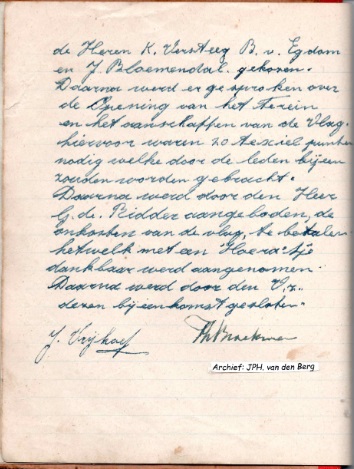 de Heren K. Versteeg B. v. Egdom
en J. Bloemendal. gekozen.
Daarna werd er gesproken over
de Opening van het Terein
en het aanschaffen van de Vlag.
hiervoor waren 20 textiel punten
nodig welke door de leden bijeen
zouden worden gebracht.
Daarna werd door den Heer
G. de. Ridder aangeboden, de
onkosten van de vlag, te betalen
hetwelk met een "Hoera"tje
dankbaar werd aangenomen.
Daarna werd door den V.z.
dezen bijeenkomst gesloten.
J. Vrijhof
Archief: JPH. van den Berg